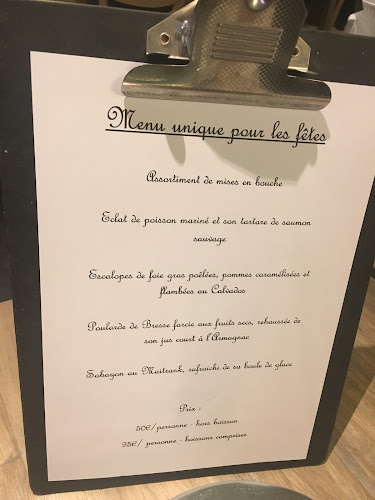 Menu unique pour les fêtes
Assortiment de mises en bouche
Eclat de poisson mariné et son tartare de saumon
sauvage
Escalopes de foie gras poêlées, pommes caramélisées et
flambées au Calvados
Poularde de Bresse farcie aux fruits secs, rehaussée de
son jus court à l'Armagnac
Sabayon au Maitrank, rafraichi de sa boule de glace
Prix :
50€/personne - hors boisson
95€/ personne - boissons comprises